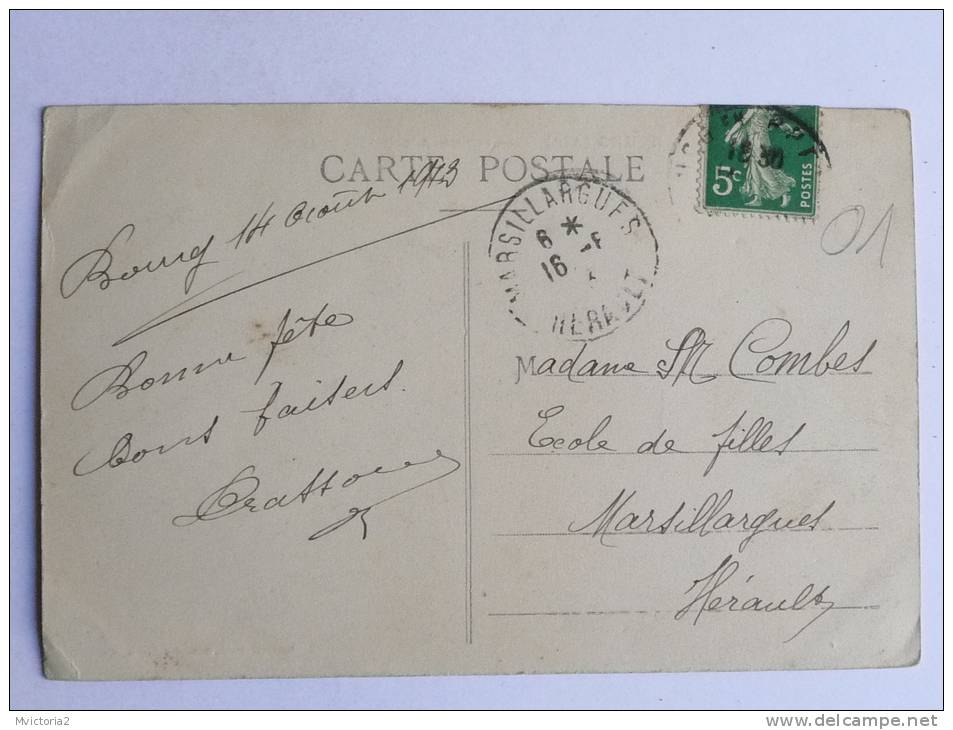 CARTE POSTALE
Bourg 14 Août 1913
Bonne fête
Bons baisers
MARSILLARGUES
6 *
16
HERAULT
5c
POSTES
18 30
01
Madame M Combes
Ecole de filles
Marsillargues
Hérault
Mvictoria2
www.delcampe.net